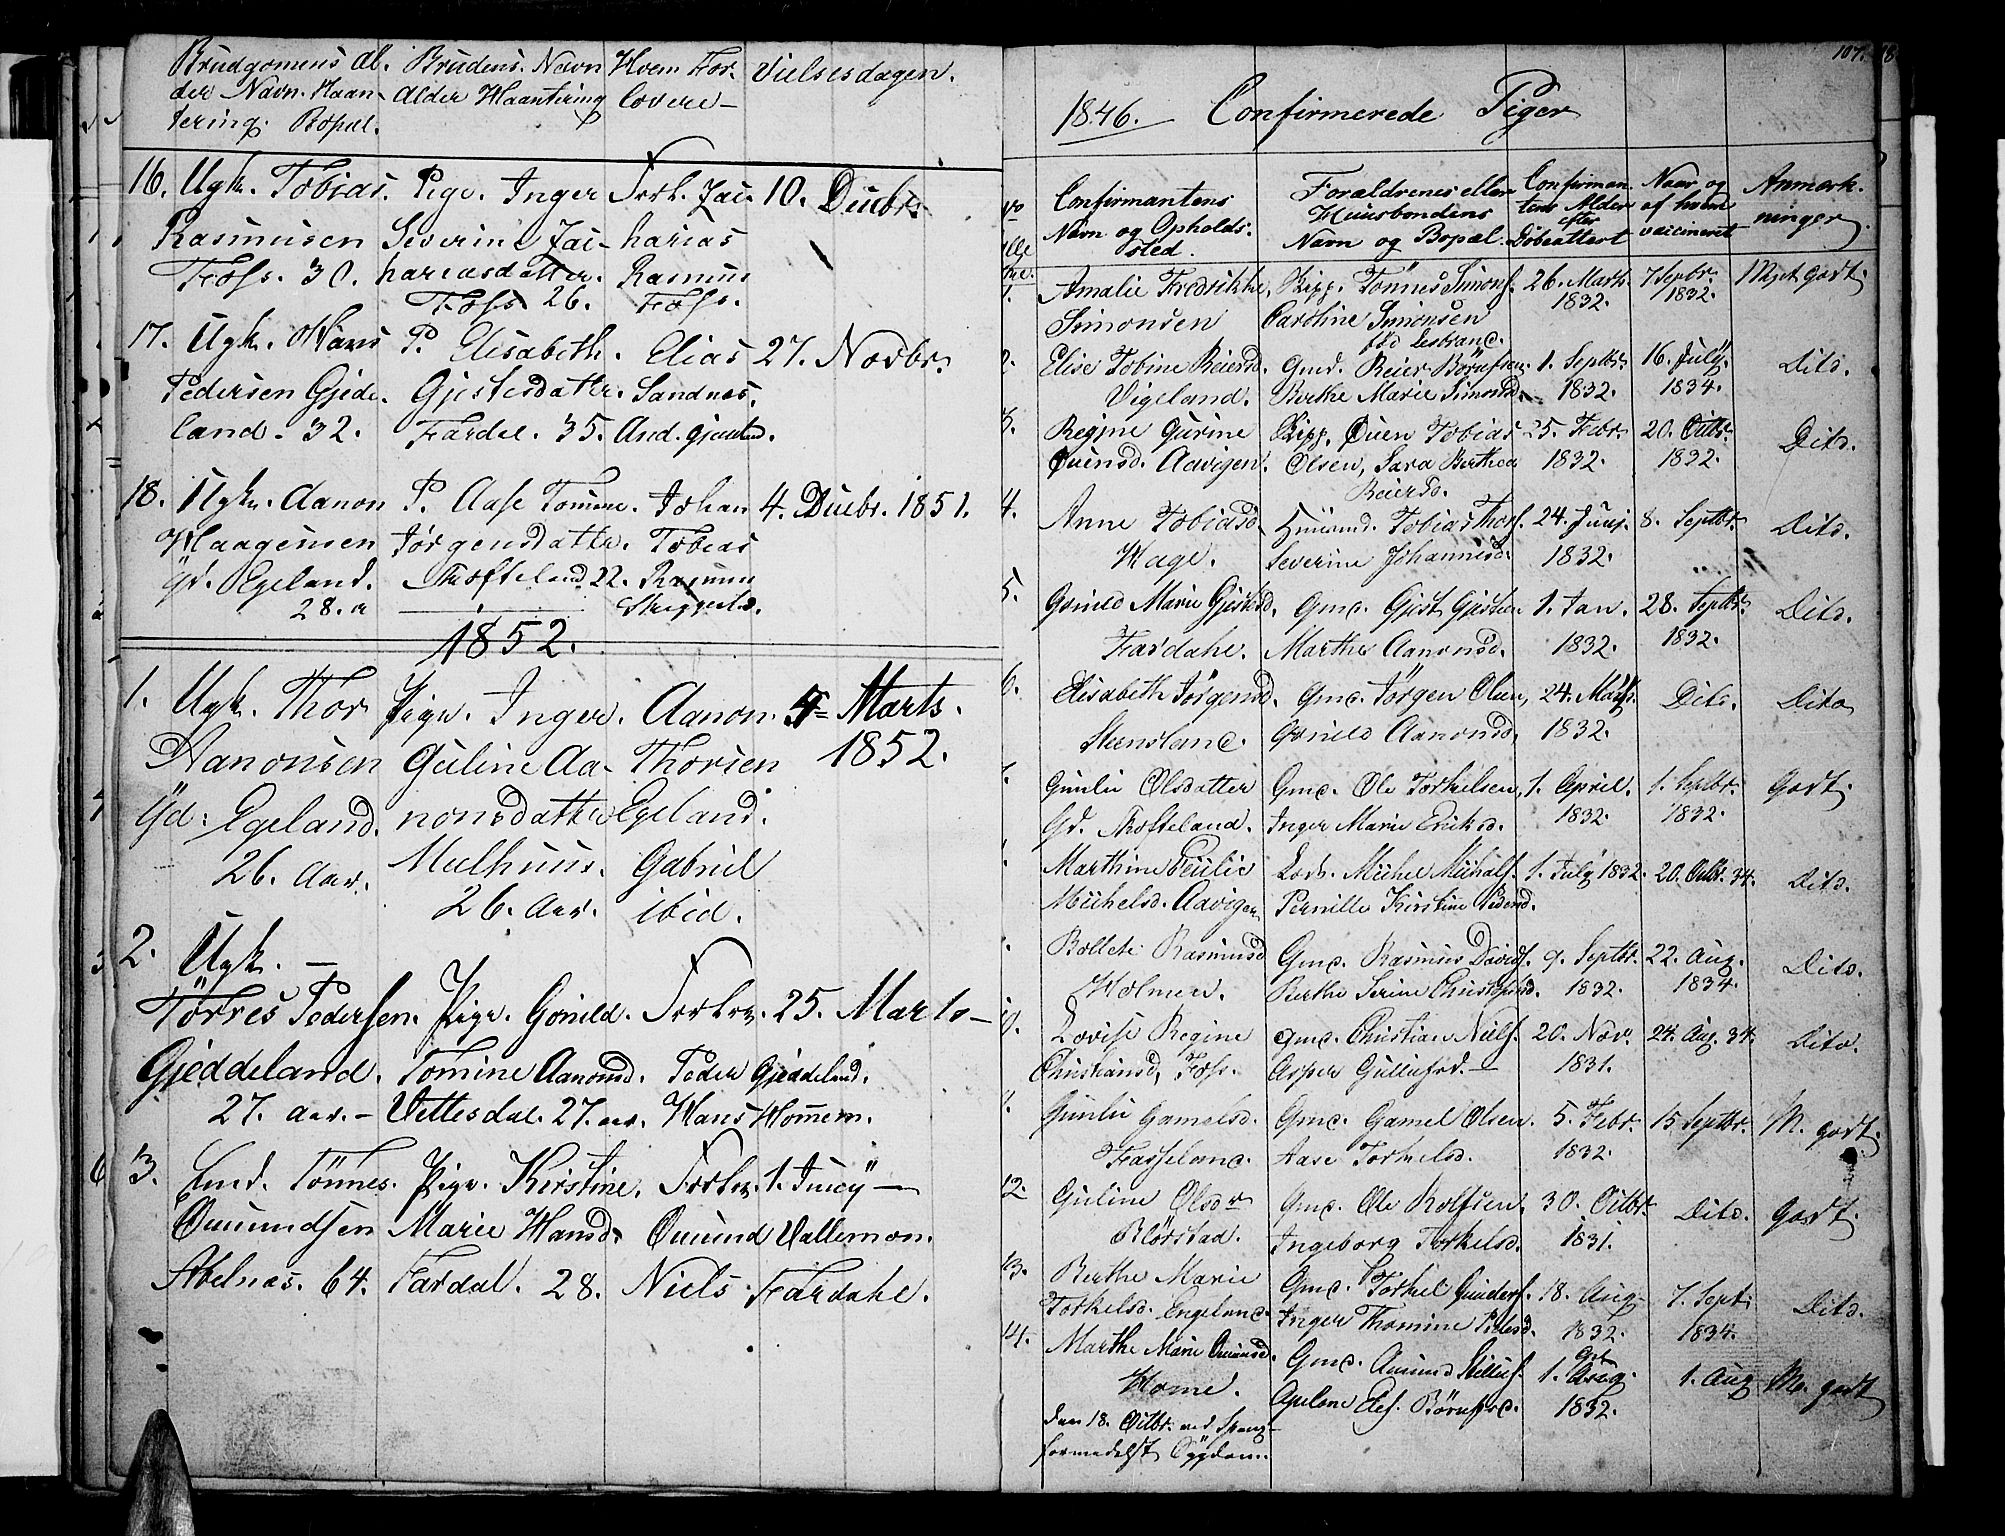 Brudgomens Al-
der Navn. Haan-
tering. Bopæl.
Brudens. Navn
Alder Haantering
Hvem For-
lovere -
Vielsesdagen.
16. Ugk. Tobias.
Rasmusen
Foss. 30.
Pige. Inger
Severine Zac-
hariasdatter.
Foss 26.
Forl. Zac-
harias
Rasmus
Foss.
10. Decbr.
17. Ugk. Hans
Pedersen Gjede-
land. 32.
P. Elisabeth.
Gjestesdattr.
Fardal. 35.
Elias
Sandnes.
And.
27. Novbr.
18. Ugk. Aanon
Haagensen
Gd. Egeland.
28. a
P. Aase Tomine.
Jørgensdattr.
Tofteland. 22.
Johan
Tobias
Rasmus
4. Decbr. 1851.
1852.
1. Ugk. Thor
Aanonsen
Gd: Egeland.
26. Aar.
Pige. Inger.
Guline Aa-
nonsdatter
Mulhuus.
26. Aar.
Aanon.
Thorsen
Egeland.
Gabriel
ibid.
4 Marts.
1852.
2. Ugk. -
Törres Pedersen.
Gjeddeland.
27. aar. -
Pige. Gonild.
Tomine Aanonsd.
Vettesdal. 27. aar.
Forlov.
Peder Gjeddeland.
Hans Homem.
25. Marts -
3. Enk. Tönnes.
Omundsen
Abelnæs. 64.
Pige. Kirstine.
Marie Hansd.
Fardal. 28.
Forlov.
Omund Vallemon.
Niels Fardahl.
1. Juny -
107.
1846. Confirmerede Piger
Confirmantens
Navn og Opholds-
sted.
Forældrenes eller
Huusbondens
Navn og Bopæl.
Confirman-
tens Alder
efter
Døbeattest
Naar og
af hvem
vaccineret
Anmærk-
ninger.
1. Amalie Fredrikke,
Simonsen
Skipp. Tönnes Simons.
Caroline Simonsen
26. Marts
1832.
7 Sepbr.
1832.
Mgt godt.
2. Elise Tobine Reiersd.
Vigeland.
Gmd. Reier Börufsen.
Berthe Marie Simonsd.
1. Septbr.
1832.
16. July
1834.
Dito.
3. Regine Gurine
Ouensd. Aavigen.
Skipp. Ouen Tobias
Olsen, Sara Berthea
Reiersd.
25. Febr.
1832.
20. Octbr.
1832.
Dito.
4. Anne Tobiasd.
Hage.
Tobias Thors.
Severine Johannesd.
24. Juny.
1832.
8. Septbr.
Dito.
5. Gonild Marie Gjestesd.
Fardahl.
Gmd. Gjest Gjestsen
Marthe Aanonsd.
1. Jan.
1832.
28. Septbr.
1832.
Dito.
6. Elisabeth Jörgensd.
Steensland.
Gmd. Jörgen Olsen,
Gonild Aanonsd.
24. Mays.
1832.
Dito.
Dito
7. Gunlu Olsdatter
Gd. Tofteland.
Gmd. Ole Torkelsen,
Inger Marie Eriksd.
1. April.
1832.
1. Septbr.
1832.
Godt.
Marthine Peulie
Michelsd. Aavigen
Lods. Michel Michals.
Pernille Kirstine Pedersd.
1. July 1832.
20. Octbr. 34.
Dito.
Bollete Rasmusd.
Holmen.
Gmd. Rasmus Davids.
Berthe Serine Christophersd.
9. Septbr.
1832.
22. Aug.
1834.
Dito.
10. Lovise Regine
Christiansd. Foss.
Gmd. Christian Niels.
Asper Gullufsd. -
20. Nov.
1831.
24. Aug. 34.
Dito.
Gunlu Gamelsd.
Fasseland.
Gmd. Gamel Olsen.
Aase Torkelsd.
5. Febr.
1832.
15 Septbr.
M. godt.
12. Guline Olsdr
Blörstad.
Gmd. Ole Rolfsen,
Ingeborg Torkelsd.
30. Octbr.
1831.
Dito.
Godt.
13. Berthe Marie
Torkelsd. Engeland.
Gmd. Torkel Gunders.
Inger Thomine Pedersd.
18. Aug
1832.
7. Sept.
1834.
Dito.
14. Marthe Marie Omunsd.
Home.
Gmd. Omund
Apelone
1. Aug.
1832.
1. Aug
M. godt
den 18. Octbr. ved
formedelst Sygdom.